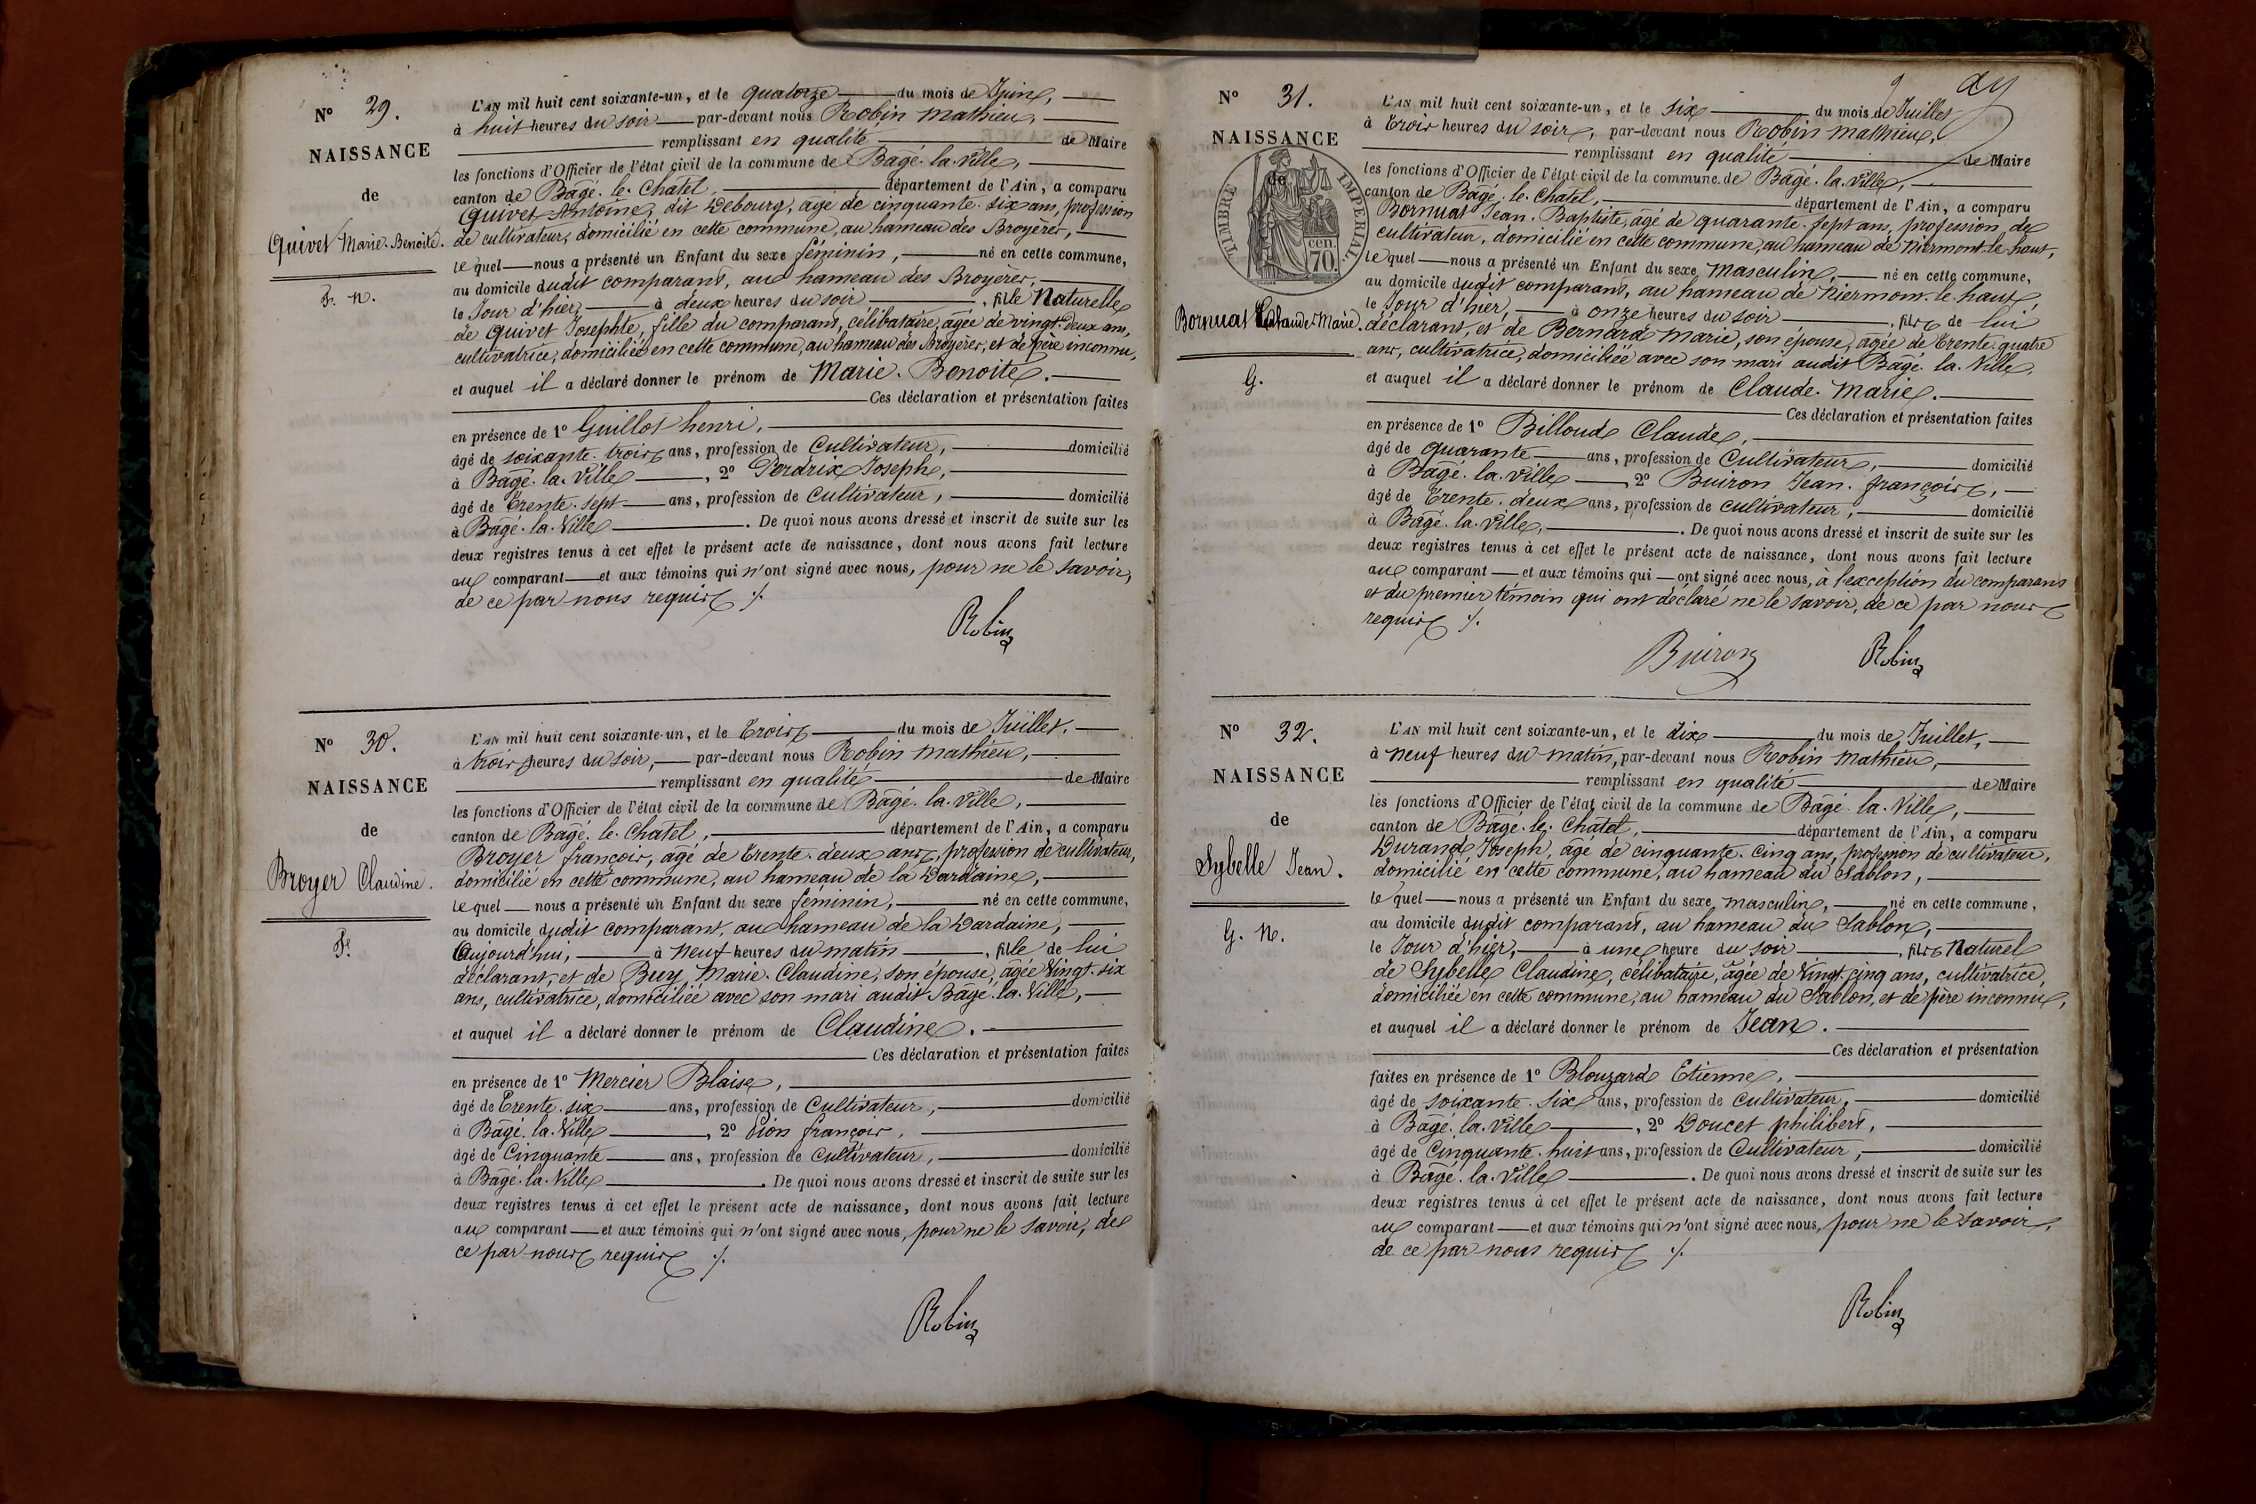 N° 29.
NAISSANCE
de
Quivet Marie-Benoite.
F. N.
L'AN mil huit cent soixante-un, et le quatorze du mois de Juin,
à huit heures du soir par-devant nous Robin Mathieu,
remplissant en qualité de Maire
les fonctions d'Officier de l'état civil de la commune de Bagé-la-Ville,
canton de Bagé-le-Chatel, département de l'Ain, a comparu
Quivet Antoine, dit Debourg, âgé de cinquante-six ans, profession
de cultivateur, domicilié en cette commune, au hameau des Broyères,
lequel nous a présenté un Enfant du sexe féminin, né en cette commune,
au domicile dudit comparant, au hameau des Broyères,
le Jour d'hier, à deux heures du soir, fille Naturelle
de Quivet Josephte, fille du comparant, célibataire, âgée de vingt-deux ans,
cultivatrice, domiciliée en cette commune, au hameau des Broyères, et de père inconnu,
et auquel il a déclaré donner le prénom de Marie-Benoite.
Ces déclaration et présentation faites
en présence de 1° Guillot henri,
âgé de soixante-trois ans, profession de Cultivateur, domicilié
à Bagé-la-Ville, 2° Perdrix Joseph,
âgé de Trente-sept ans, profession de Cultivateur, domicilié
à Bagé-la-Ville. De quoi nous avons dressé et inscrit de suite sur les
deux registres tenus à cet effet le présent acte de naissance, dont nous avons fait lecture
au comparant et aux témoins qui n'ont signé avec nous, pour ne le savoir,
de ce par nous requis ./.
Robin
N° 30.
NAISSANCE
de
Broyer Claudine.
F.
L'AN mil huit cent soixante-un, et le Trois du mois de Juillet,
à trois heures du soir, par-devant nous Robin Mathieu,
remplissant en qualité de Maire
les fonctions d'Officier de l'état civil de la commune de Bagé-la-Ville,
canton de Bagé-le-Chatel, département de l'Ain, a comparu
Broyer françois, âgé de Trente-deux ans, profession de cultivateur,
domicilié en cette commune, au hameau de la Dardaine,
lequel nous a présenté un Enfant du sexe féminin, né en cette commune,
au domicile dudit comparant, au hameau de la Dardaine,
Aujourd'hui, à neuf heures du matin, fille de lui
déclarant, et de Buy Marie-Claudine, son épouse, âgée Vingt-six
ans, cultivatrice, domiciliée avec son mari audit Bagé-la-Ville,
et auquel il a déclaré donner le prénom de Claudine.
Ces déclaration et présentation faites
en présence de 1° Mercier Blaise,
âgé de Trente-six ans, profession de Cultivateur, domicilié
à Bagé-la-Ville, 2° Pion françois,
âgé de Cinquante ans, profession de Cultivateur, domicilié
à Bagé-la-Ville. De quoi nous avons dressé et inscrit de suite sur les
deux registres tenus à cet effet le présent acte de naissance, dont nous avons fait lecture
au comparant et aux témoins qui n'ont signé avec nous, pour ne le savoir, de
ce par nous requis ./.
Robin
9
N° 31.
NAISSANCE
de
TIMBRE IMPERIAL
70. cen
Bornuat Claude-Marie.
G.
L'AN mil huit cent soixante-un, et le six du mois de Juillet
à Trois heures du soir, par-devant nous Robin Mathieu,
remplissant en qualité de Maire
les fonctions d'Officier de l'état civil de la commune de Bagé-la-Ville,
canton de Bagé-le-Chatel, département de l'Ain, a comparu
Bornuat Jean-Baptiste, âgé de quarante-sept ans, profession de
cultivateur, domicilié en cette commune, au hameau de Niermont-le-haut,
lequel nous a présenté un Enfant du sexe masculin, né en cette commune,
au domicile dudit comparant, au hameau de Niermont-le-haut,
le Jour d'hier, à onze heures du soir, fils de lui
déclarant, et de Bernard Marie, son épouse, âgée de Trente-quatre
ans, cultivatrice, domiciliée avec son mari audit Bagé-la-Ville,
et auquel il a déclaré donner le prénom de Claude-Marie.
Ces déclaration et présentation faites
en présence de 1° Billoud Claude,
âgé de quarante ans, profession de Cultivateur, domicilié
à Bagé-la-Ville, 2° Buiron Jean-françois,
âgé de Trente-deux ans, profession de cultivateur, domicilié
à Bagé-la-Ville. De quoi nous avons dressé et inscrit de suite sur les
deux registres tenus à cet effet le présent acte de naissance, dont nous avons fait lecture
au comparant et aux témoins qui ont signé avec nous, à l'exception du comparant
et du premier témoin qui ont déclaré ne le savoir, de ce par nous
requis ./.
Buiron Robin
N° 32.
NAISSANCE
de
Sybelle Jean.
G. N.
L'AN mil huit cent soixante-un, et le dix du mois de Juillet,
à neuf heures du matin, par-devant nous Robin Mathieu,
remplissant en qualité de Maire
les fonctions d'Officier de l'état civil de la commune de Bagé-la-Ville,
canton de Bagé-le-Chatel, département de l'Ain, a comparu
Durand Joseph, âgé de cinquante-cinq ans, profession de cultivateur,
domicilié en cette commune, au hameau du Sablon,
lequel nous a présenté un Enfant du sexe masculin, né en cette commune,
au domicile dudit comparant, au hameau du Sablon,
le Jour d'hier, à une heure du soir, fils Naturel
de Sybelle Claudine, célibataire, âgée de Vingt-cinq ans, cultivatrice,
domiciliée en cette commune, au hameau du Sablon, et de père inconnu,
et auquel il a déclaré donner le prénom de Jean.
Ces déclaration et présentation
faites en présence de 1° Blouzard Etienne,
âgé de soixante-six ans, profession de cultivateur, domicilié
à Bagé-la-Ville, 2° Doucet philibert,
âgé de Cinquante-huit ans, profession de Cultivateur, domicilié
à Bagé-la-Ville. De quoi nous avons dressé et inscrit de suite sur les
deux registres tenus à cet effet le présent acte de naissance, dont nous avons fait lecture
au comparant et aux témoins qui n'ont signé avec nous, pour ne le savoir,
de ce par nous requis ./.
Robin